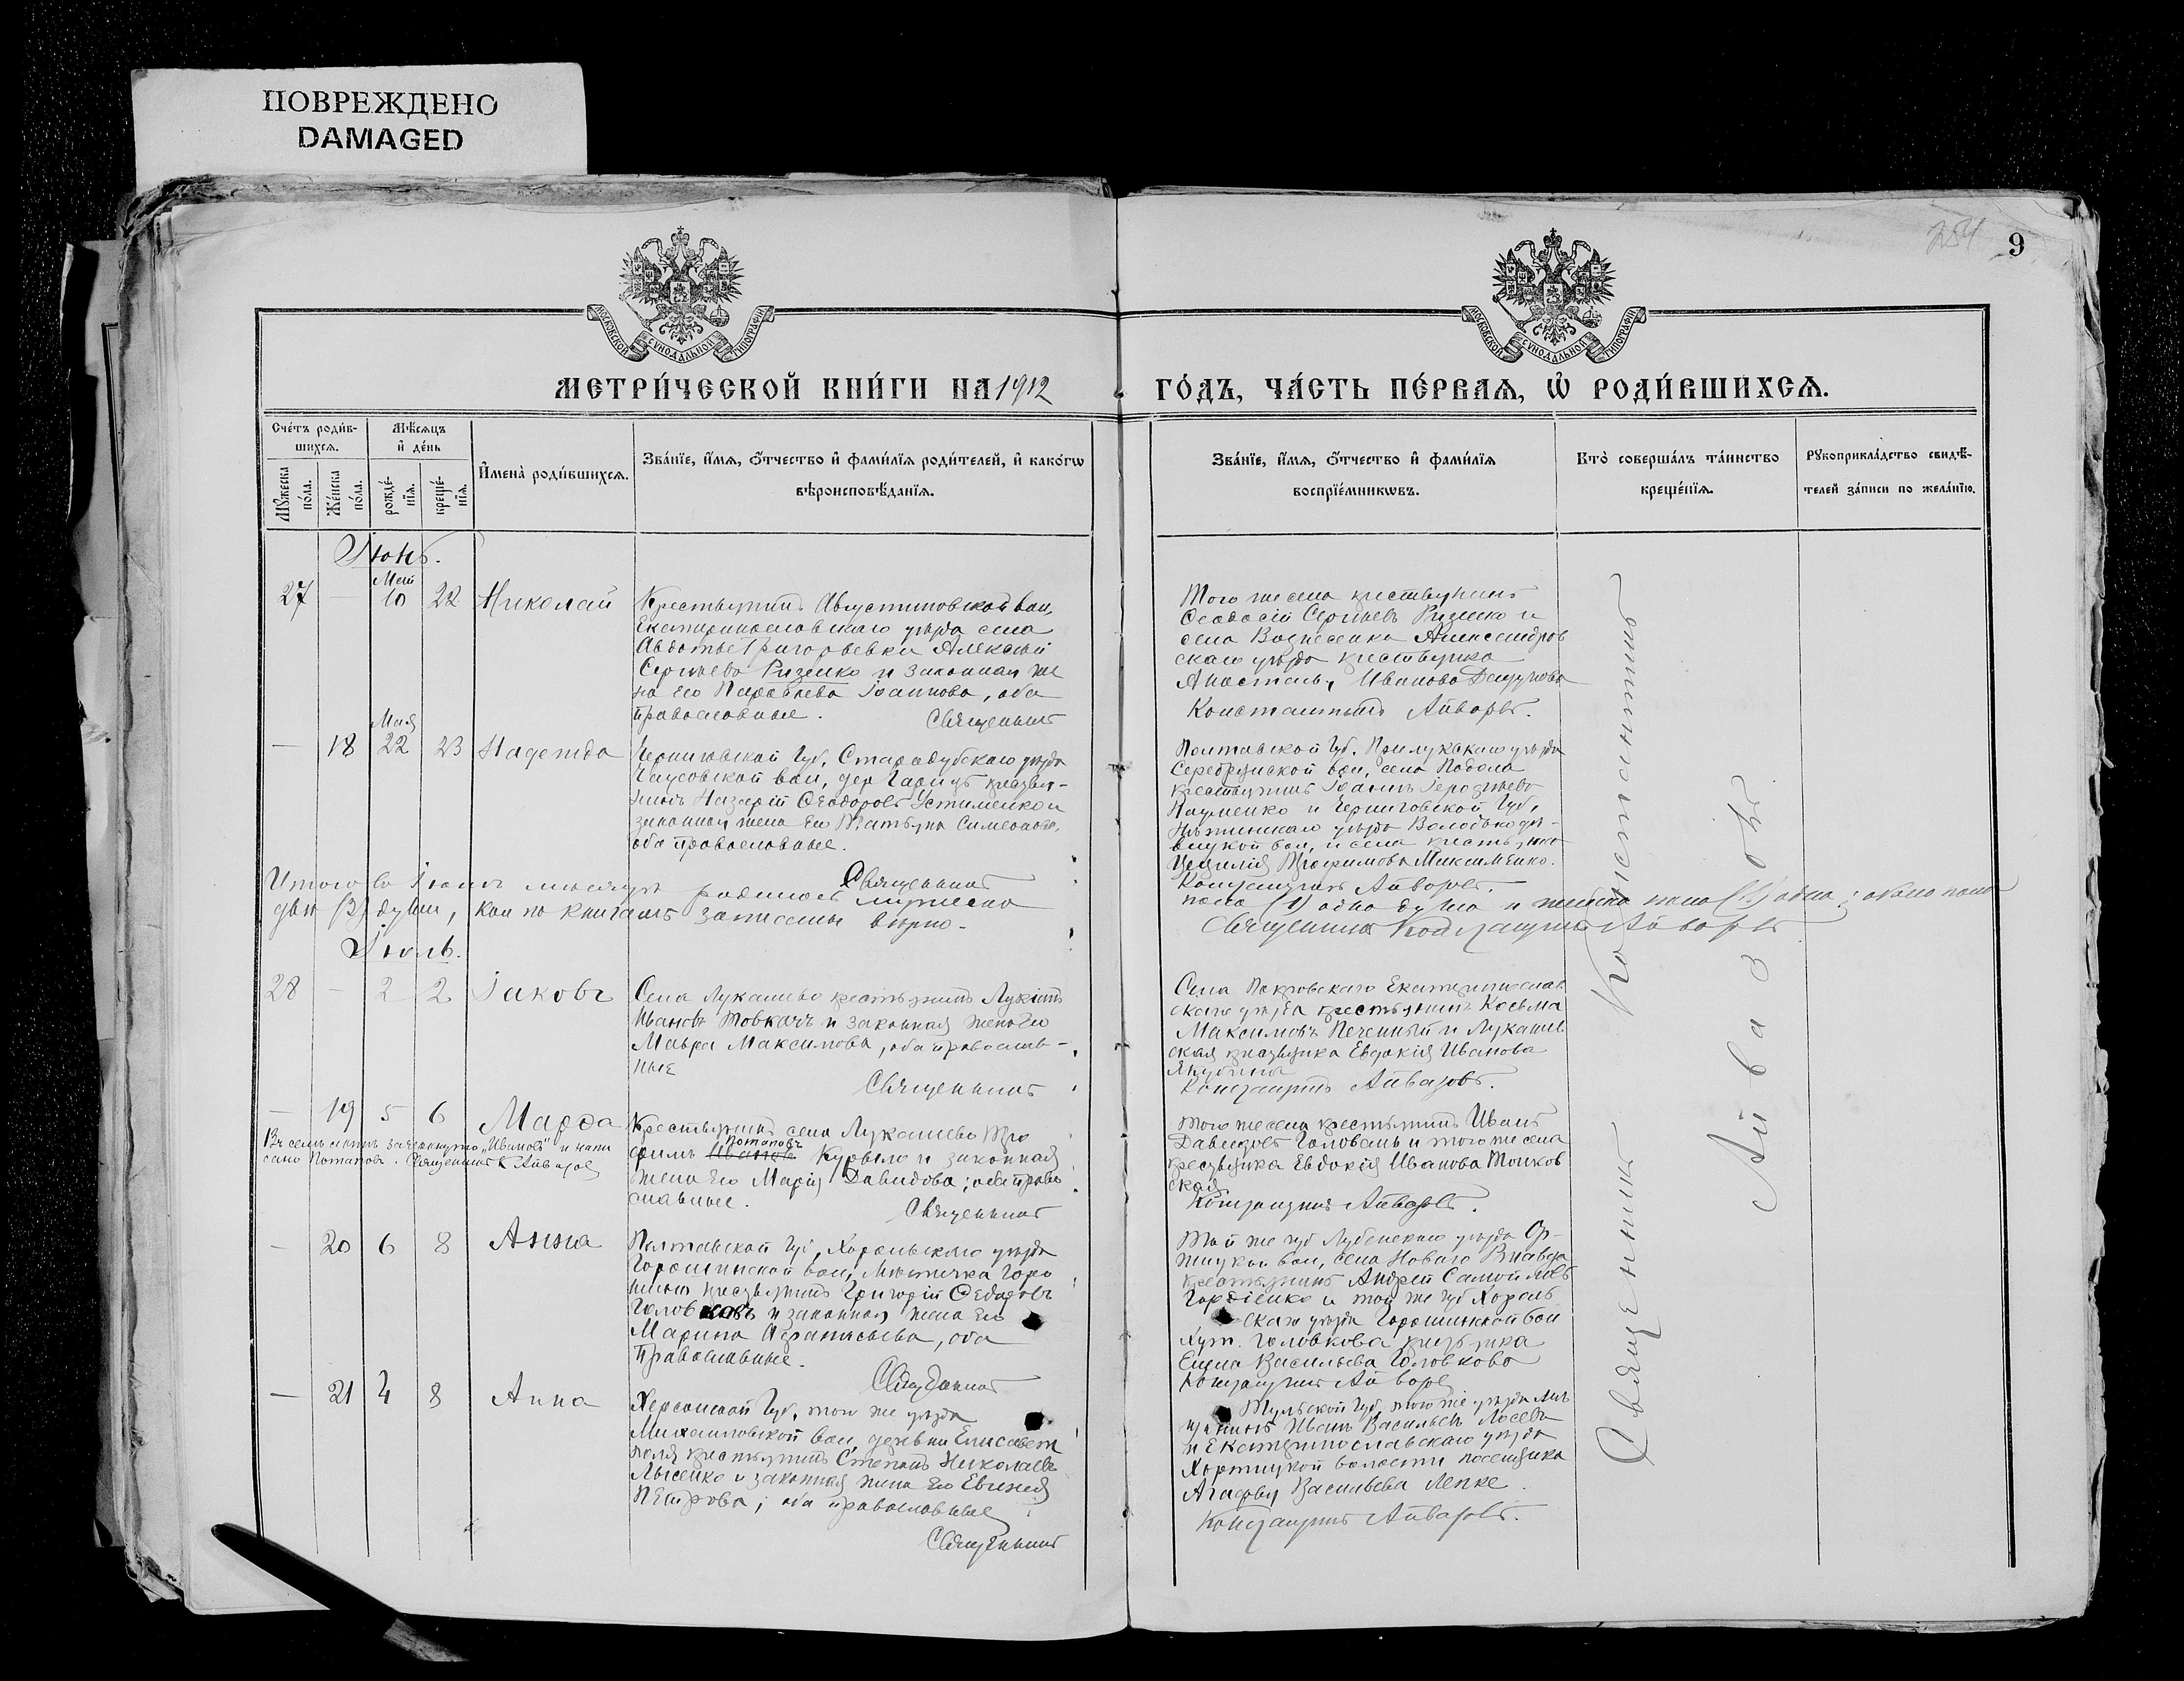 ПОВРЕЖДЕНО
DAMAGED
254
9
МОСКОВСКОЙ СѴНОДАЛЬНОЙ ТИПОГРАФІИ
МОСКОВСКОЙ СѴНОДАЛЬНОЙ ТИПОГРАФІИ
МЕТРИ́ЧЕСКОЙ КНИ́ГИ НА 1912
ГО́ДЪ, ЧА́СТЬ ПЕ́РВАѦ, Ѡ҆ РОДИ́ВШИХСѦ.
Сче́тъ роди́в-
шихсѧ.
Мꙋ́жеска
по́ла.
Же́нска
по́ла.
Мѣ́сѧцъ
и҆ де́нь
рожде́-
нїѧ.
креще́-
нїѧ.
И҆мена̀ роди́вшихсѧ.
Зва́нїе, и҆́мѧ, ѻ҆́тчество и҆ фами́лїѧ роди́телей, и҆ како́гѡ
вѣроисповѣ́данїѧ.
Зва́нїе, и҆́мѧ, ѻ҆́тчество и҆ фами́лїѧ
воспрїе́мникѡвъ.
Кто̀ соверша́лъ та́инство
креще́нїѧ.
Рꙋкоприкла́дство свидѣ́-
телей за́писи по жела́нїю.
Іюнь.
27 — Мая 10 22 Николай
Крестьянинъ Августиновской вол,
Екатеринославскаго уѣзда села
Авдотье Григорьевки Алексій
Сергіевъ Ризенко и законная же
на его Параскева Іоаннова, оба
православные.
Священникъ
Того же села крестьянинъ
Ѳеодосій Сергіевъ Ризенко и
села Вознесенка Александров
скаго уѣзда крестьянка
Анастасія Иванова
Константинъ Айвазовъ.
— 18 Мая 22 23 Надежда
Черниговской Губ, Стародубскаго уѣзда
вол, дер крестья-
нинъ Назарій Ѳеодоровъ Устименко и
законная жена его Татьяна Симеонова,
оба православные.
Священникъ
Полтавской Губ. Прилукскаго уѣзда
Серебрянской вол, села Подола
крестьянинъ Іоаннъ
Науменко и Черниговской Губ,
Нѣжинскаго уѣзда Володькодѣ-
вицкой вол, и села крестьянка
Трофимова Максименко.
Константинъ Айвазовъ.
Итого въ Іюнѣ мѣсяцѣ родилось мужеска
пола (1) одна душа и женска пола (1) одна; обоего пола
двѣ (2) души, кои по книгамъ записаны вѣрно.
Священникъ Константинъ Айвазовъ
Іюль.
28 — 2 2 Іаковъ
Села Лукашево крестьянинъ Лукіанъ
Ивановъ Товкачъ и законная жена его
Мавра Максимова, оба православ-
ные
Священникъ
Села Покровскаго Екатеринослав
скаго уѣзда крестьянинъ Косьма
Максимовъ Печенный и Лукашев
ская крестьянка Евдокія Иванова
Константинъ Айвазовъ.
— 19 5 6 Марѳа
Въ семъ актѣ зачеркнуто „Ивановъ" и напи
сано Потаповъ. Священникъ К Айвазовъ
Крестьянинъ села Лукашево Тро
фимъ Ивановъ Потаповъ Курыло и законная
жена его Марія Давидова; оба право
славные.
Священникъ
Того же села крестьянинъ Иванъ
Давидовъ Головань и того же села
крестьянка Евдокія Иванова
ская
Константинъ Айвазовъ.
— 20 6 8 Анна
Полтавской Губ, Хорольскаго уѣзда
Горошинской вол, Мѣстечка Горо
шина крестьянинъ Григорій Ѳедоровъ
и законная жена его
Марина Аѳанасьева, оба
православные.
Священникъ
Той же губ Лубенскаго уѣзда Ор-
жицкой вол, села Новаго
крестьянинъ Андрей Самойловъ
Гордіенко и той же губ Хороль
скаго уѣзда Горошинской вол
Хут. Головкова крестьянка
Елена Васильева Головкова
Константинъ Айвазовъ
— 21 4 8 Анна
Херсонской Губ, того же уѣзда
Михайловской вол, деревни Елисавет
поля крестьянинъ Степанъ Николаевъ
Лысенко и законная жена его Евгенія
Петрова; оба православные
Священникъ
Тульской Губ, того же уѣзда мѣ
щанинъ Иванъ Васильевъ Лосевъ
и Екатеринославскаго уѣзда
Хортицкой волости поселянка
Агафья Васильева Лепке.
Константинъ Айвазовъ.
Священникъ Константинъ
Айвазовъ